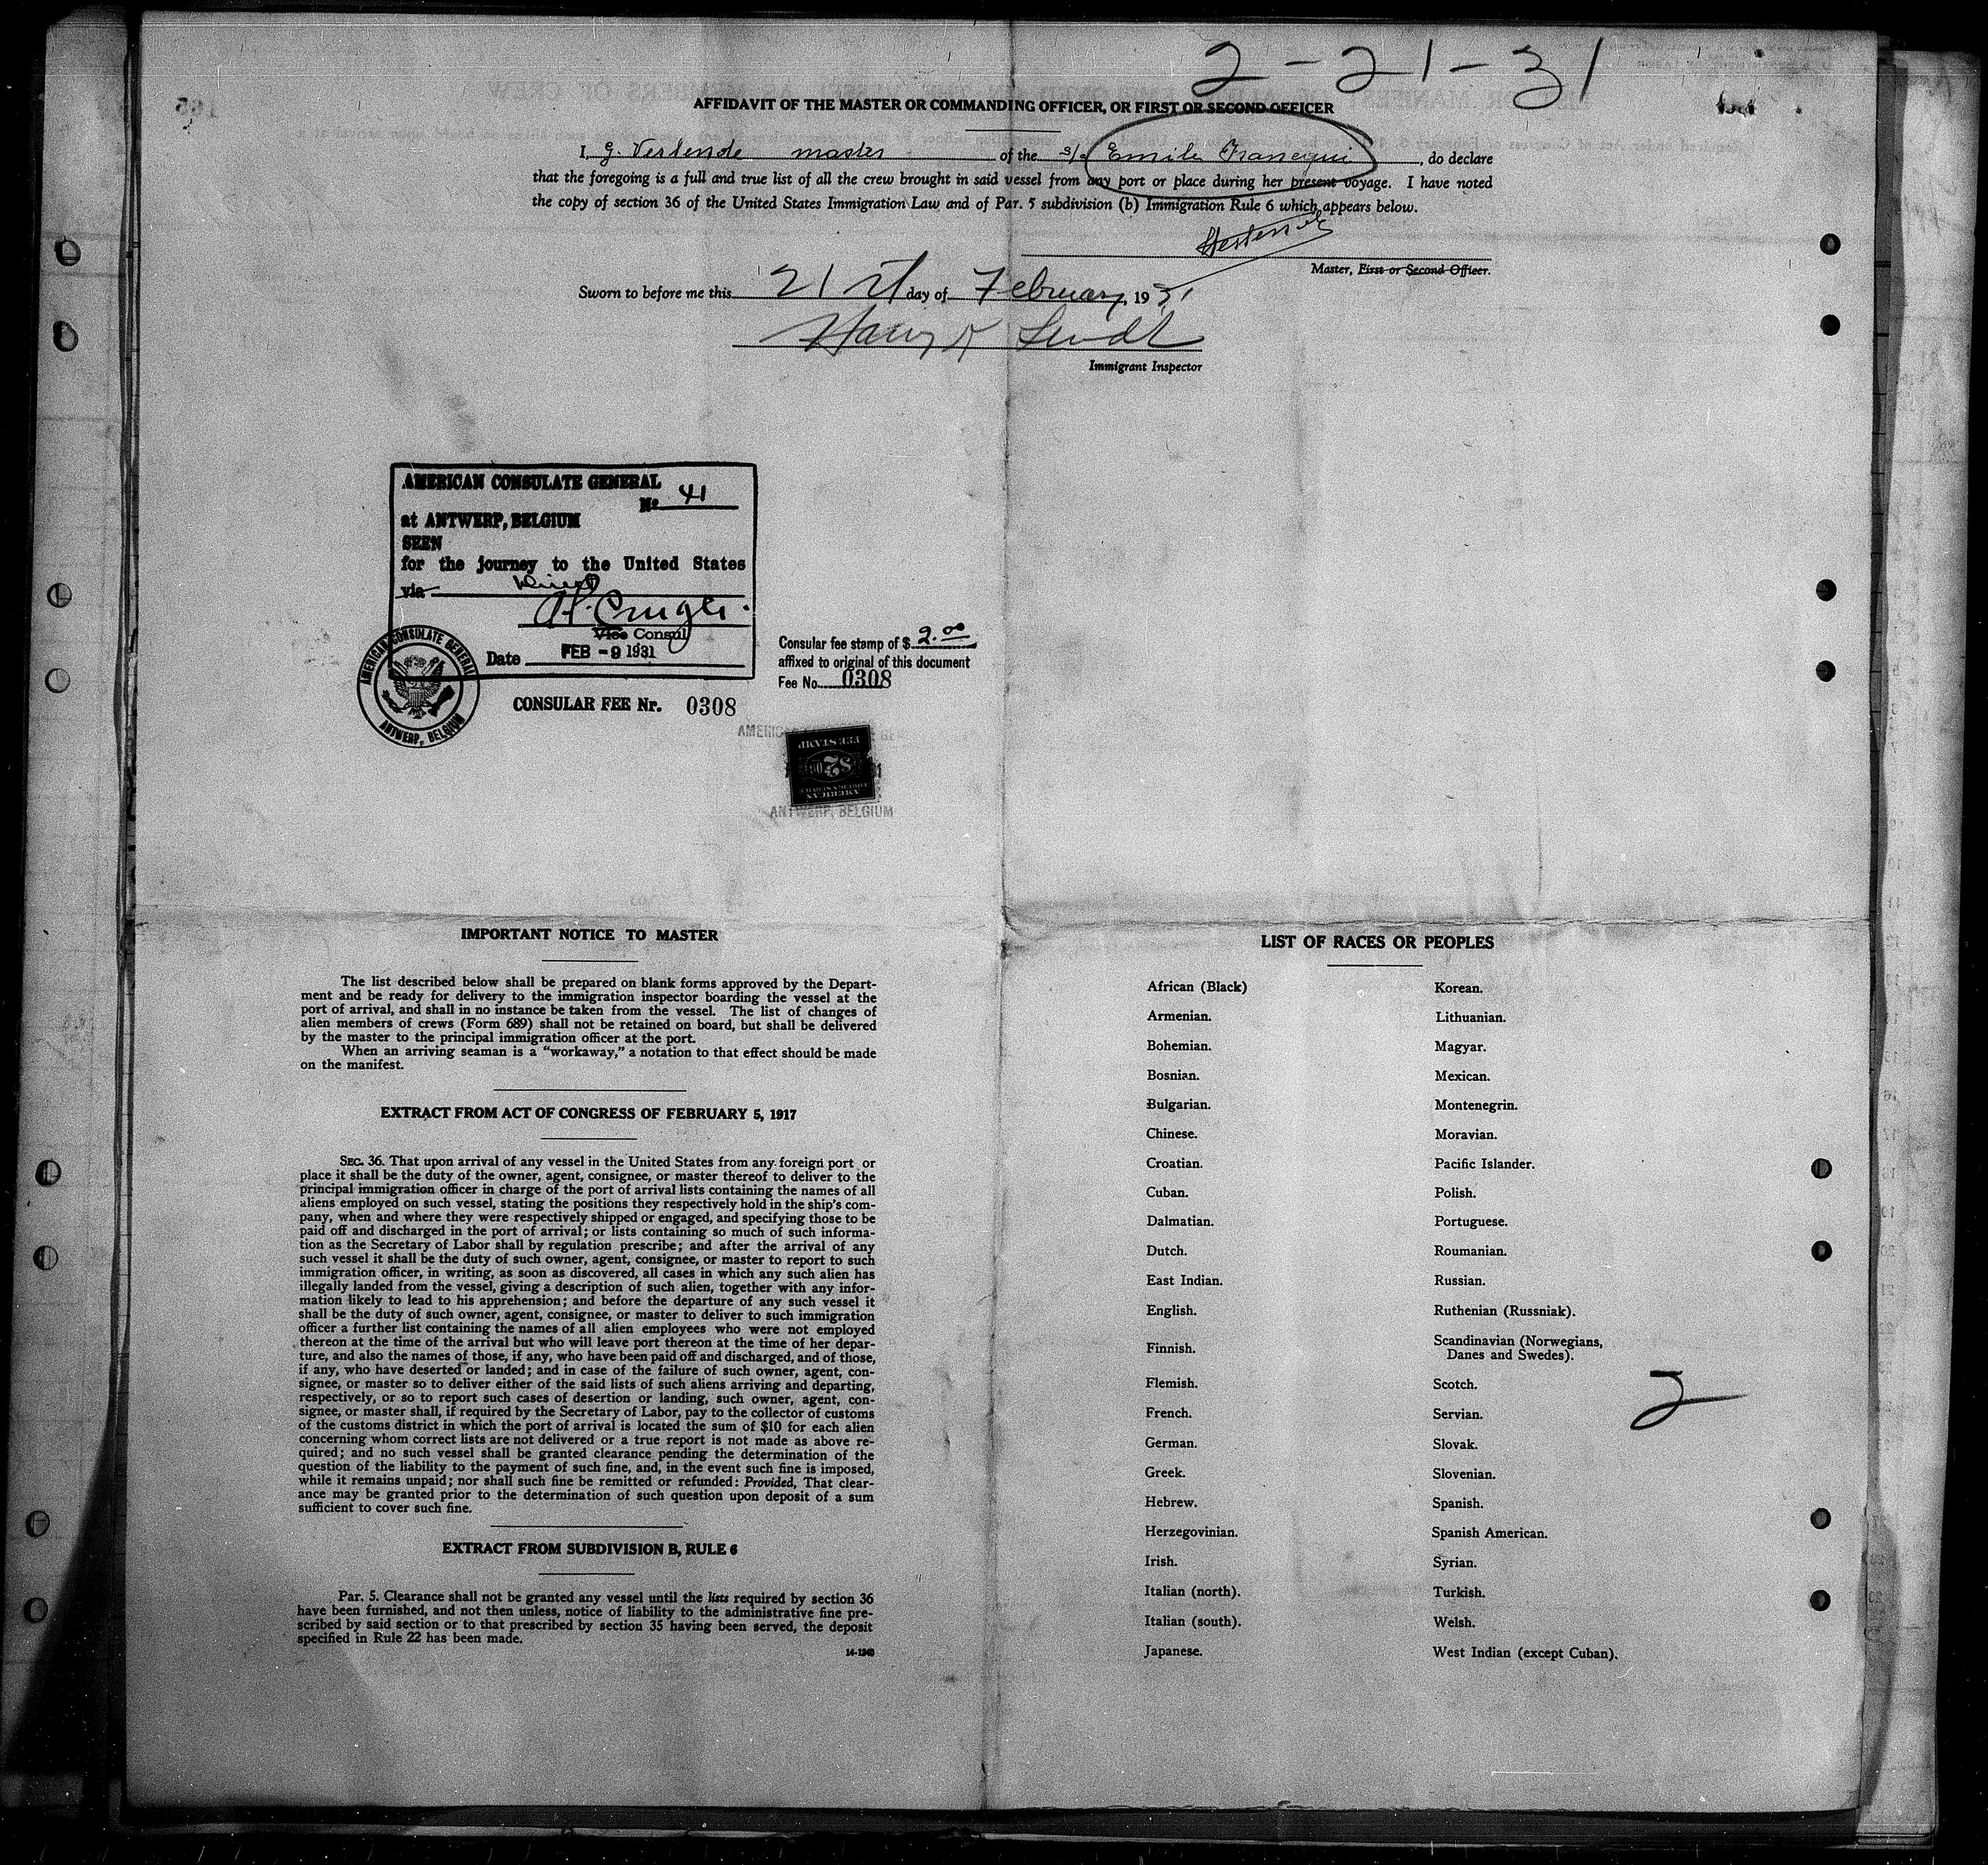 2-21-31
AFFIDAVIT OF THE MASTER OR COMMANDING OFFICER, OR FIRST OR SECOND OFFICER
I, g. Verlende master of the s/s Emile Francqui, do declare
that the foregoing is a full and true list of all the crew brought in said vessel from any port or place during her present voyage. I have noted
the copy of section 36 of the United States Immigration Law and of Par. 5 subdivision (b) Immigration Rule 6 which appears below.
Master, First or Second Officer.
Sworn to before me this 21st day of February, 1931
Harry
Immigrant Inspector
AMERICAN CONSULATE GENERAL
No 41
at ANTWERP, BELGIUM
SEEN
for the journey to the United States
via direct
Vice Consul
Date FEB -9 1931
AMERICAN CONSULATE GENERAL
ANTWERP, BELGIUM
CONSULAR FEE Nr. 0308
Consular fee stamp of $ 2.00
affixed to original of this document
Fee No. 0308
AMERICAN
FOREIGN SERVICE
$2
FEE STAMP
ANTWERP, BELGIUM
IMPORTANT NOTICE TO MASTER
The list described below shall be prepared on blank forms approved by the Depart-
ment and be ready for delivery to the immigration inspector boarding the vessel at the
port of arrival, and shall in no instance be taken from the vessel. The list of changes of
alien members of crews (Form 689) shall not be retained on board, but shall be delivered
by the master to the principal immigration officer at the port.
When an arriving seaman is a "workaway," a notation to that effect should be made
on the manifest.
EXTRACT FROM ACT OF CONGRESS OF FEBRUARY 5, 1917
SEC. 36. That upon arrival of any vessel in the United States from any foreign port or
place it shall be the duty of the owner, agent, consignee, or master thereof to deliver to the
principal immigration officer in charge of the port of arrival lists containing the names of all
aliens employed on such vessel, stating the positions they respectively hold in the ship's com-
pany, when and where they were respectively shipped or engaged, and specifying those to be
paid off and discharged in the port of arrival; or lists containing so much of such informa-
tion as the Secretary of Labor shall by regulation prescribe; and after the arrival of any
such vessel it shall be the duty of such owner, agent, consignee, or master to report to such
immigration officer, in writing, as soon as discovered, all cases in which any such alien has
illegally landed from the vessel, giving a description of such alien, together with any infor-
mation likely to lead to his apprehension; and before the departure of any such vessel it
shall be the duty of such owner, agent, consignee, or master to deliver to such immigration
officer a further list containing the names of all alien employees who were not employed
thereon at the time of the arrival but who will leave port thereon at the time of her depar-
ture, and also the names of those, if any, who have been paid off and discharged, and of those,
if any, who have deserted or landed; and in case of the failure of such owner, agent, con-
signee, or master so to deliver either of the said lists of such aliens arriving and departing,
respectively, or so to report such cases of desertion or landing, such owner, agent, con-
signee, or master shall, if required by the Secretary of Labor, pay to the collector of customs
of the customs district in which the port of arrival is located the sum of $10 for each alien
concerning whom correct lists are not delivered or a true report is not made as above re-
quired; and no such vessel shall be granted clearance pending the determination of the
question of the liability to the payment of such fine, and, in the event such fine is imposed,
while it remains unpaid; nor shall such fine be remitted or refunded: Provided, That clear-
ance may be granted prior to the determination of such question upon deposit of a sum
sufficient to cover such fine.
EXTRACT FROM SUBDIVISION B, RULE 6
Par. 5. Clearance shall not be granted any vessel until the lists required by section 36
have been furnished, and not then unless, notice of liability to the administrative fine pre-
scribed by said section or to that prescribed by section 35 having been served, the deposit
specified in Rule 22 has been made.
14-1240
LIST OF RACES OR PEOPLES
African (Black)
Armenian.
Bohemian.
Bosnian.
Bulgarian.
Chinese.
Croatian.
Cuban.
Dalmatian.
Dutch.
East Indian.
English.
Finnish.
Flemish.
French.
German.
Greek.
Hebrew.
Herzegovinian.
Irish.
Italian (north).
Italian (south).
Japanese.
Korean.
Lithuanian.
Magyar.
Mexican.
Montenegrin.
Moravian.
Pacific Islander.
Polish.
Portuguese.
Roumanian.
Russian.
Ruthenian (Russniak).
Scandinavian (Norwegians,
Danes and Swedes).
Scotch.
Servian.
Slovak.
Slovenian.
Spanish.
Spanish American.
Syrian.
Turkish.
Welsh.
West Indian (except Cuban).
2